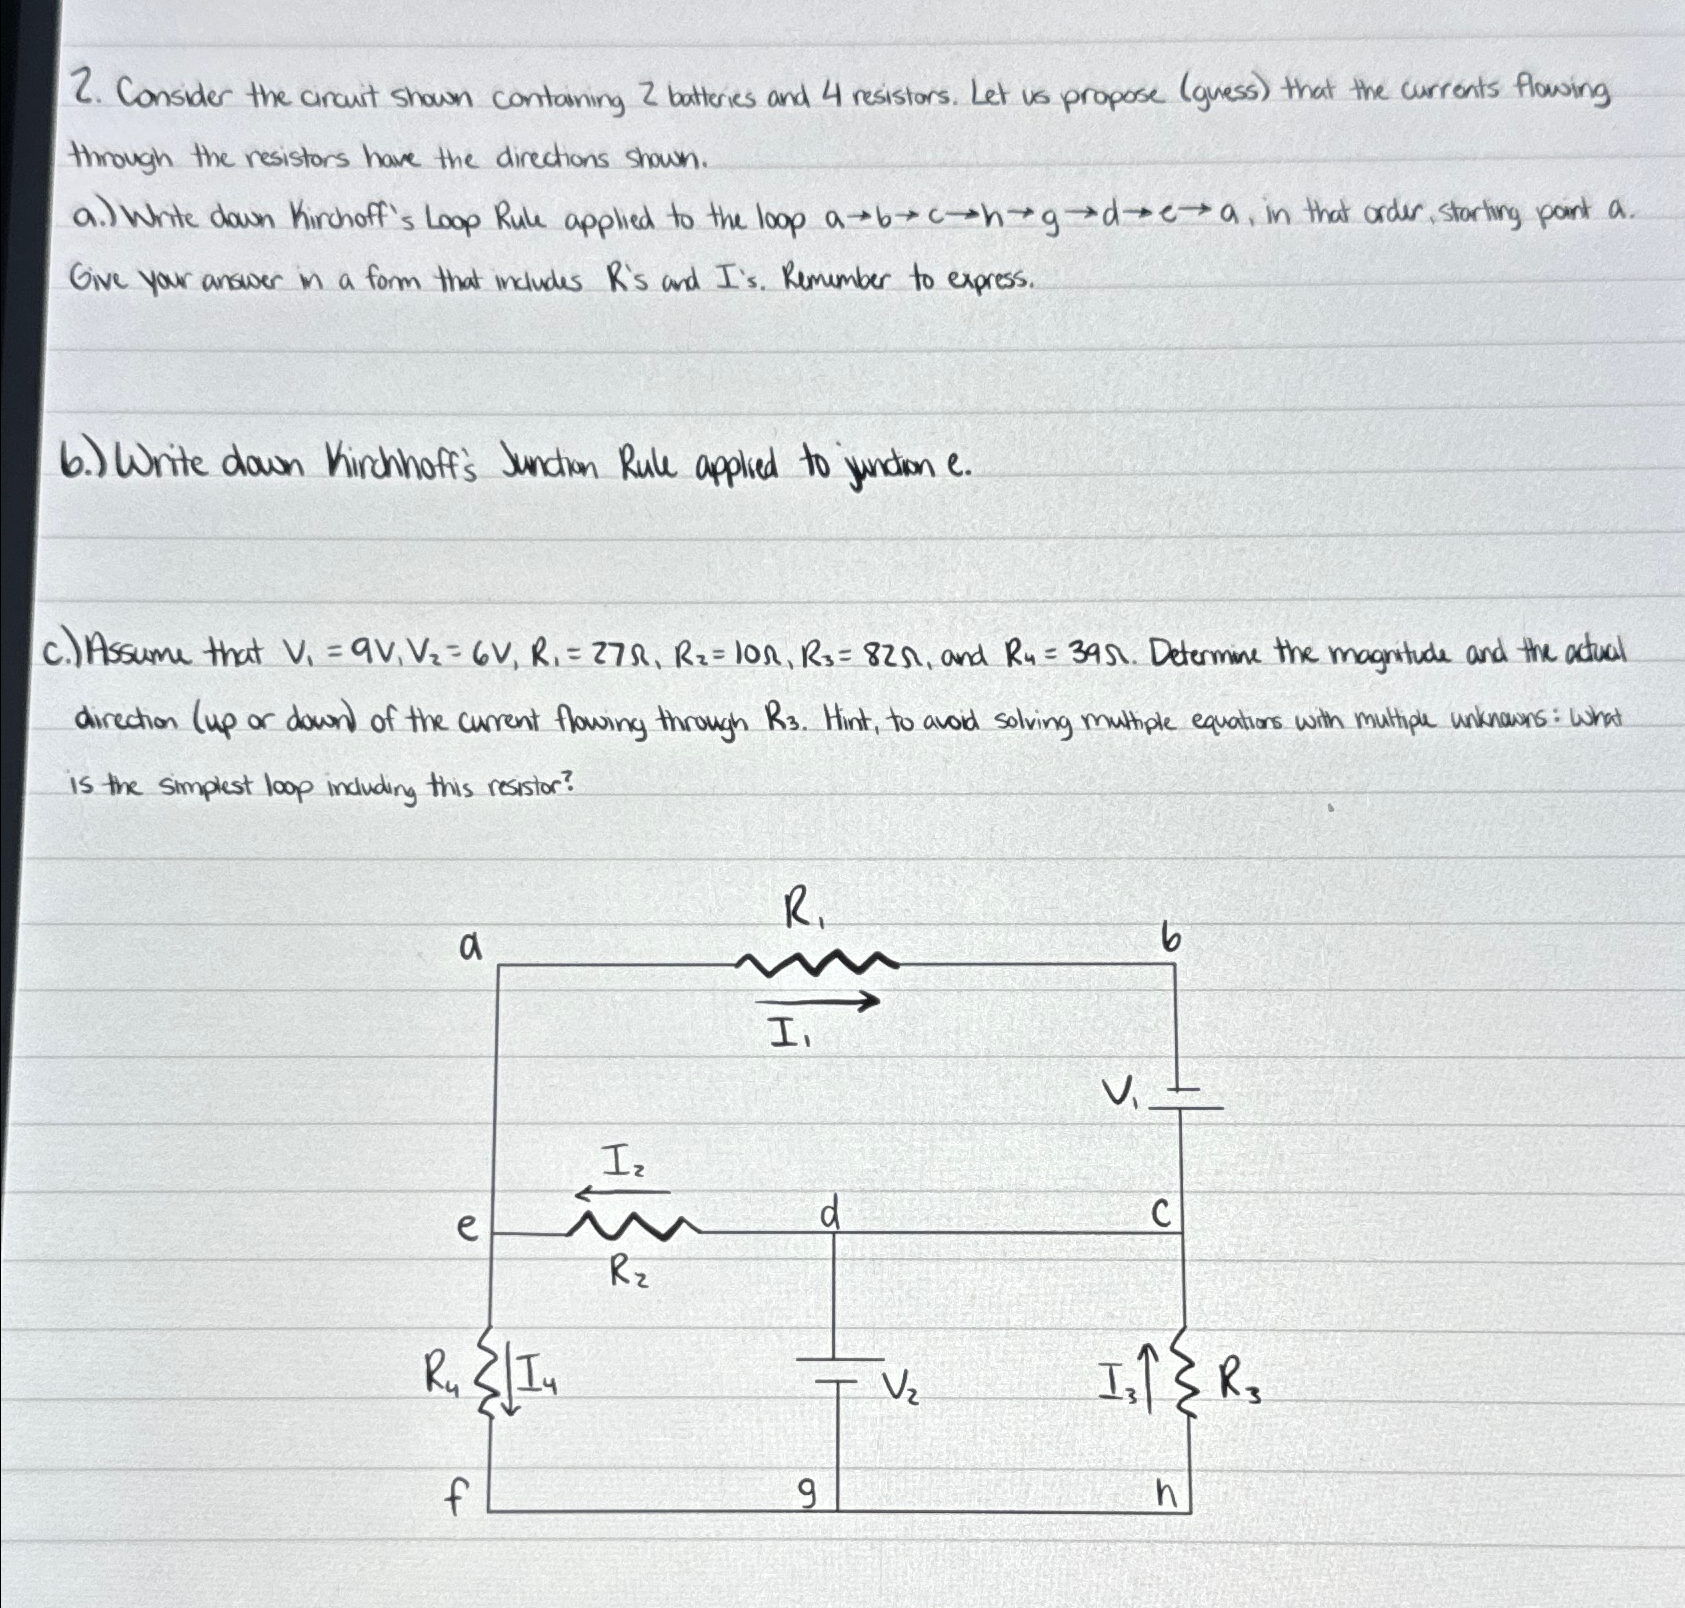 2. Consider the circuit shown containing 2 batteries and 4 resistors. Let us propose (guess) that the currents flowing
through the resistors have the directions shown.
a.) Write down Kirchoff's Loop Rule applied to the loop a→b→c→h→g→d→e→a, in that order, starting point a.
Give your answer in a form that includes R's and I's. Remember to express.
b.) Write down Kirchhoff's Junction Rule applied to junction e.
c.) Assume that V₁ = 9V, V₂ = 6V, R₁ = 27Ω, R₂ = 10Ω, R₃ = 82Ω, and R₄ = 39Ω. Determine the magnitude and the actual
direction (up or down) of the current flowing through R₃. Hint, to avoid solving multiple equations with multiple unknowns: What
is the simplest loop including this resistor?
R₁
a
b
I₁
V₁
I₂
e
d
c
R₂
R₄
I₄
V₂
I₃
R₃
f
g
h